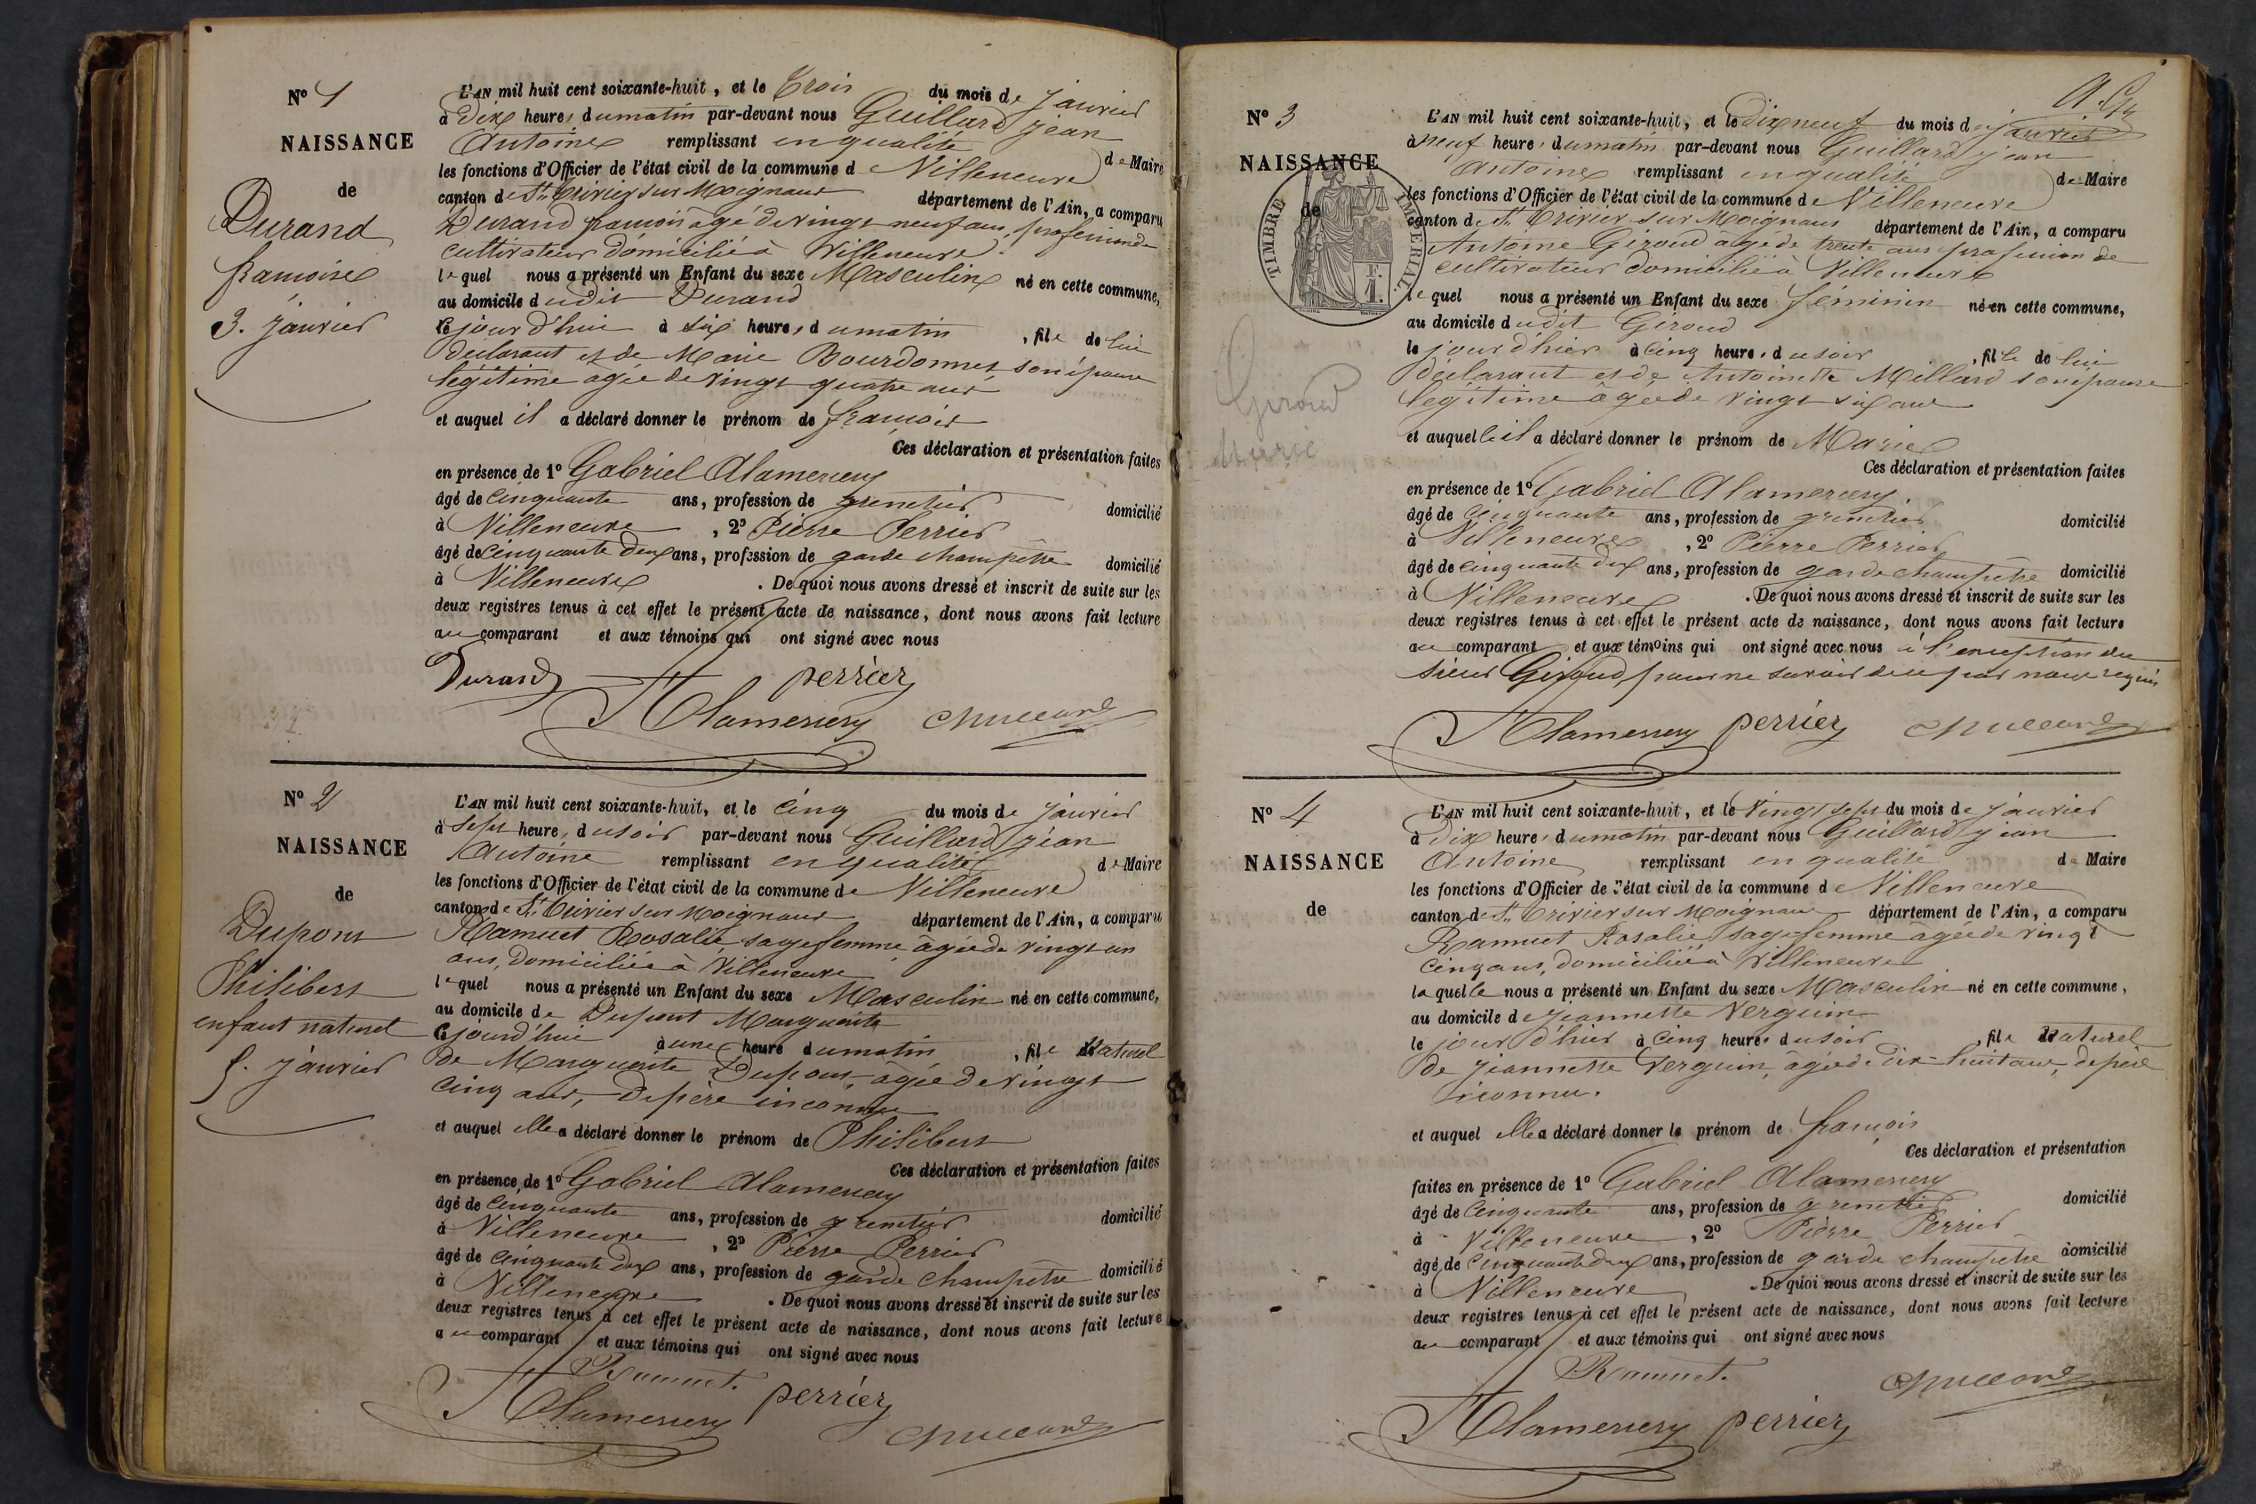 Nº 1
NAISSANCE
de
Durand
francois
3. janvier
L'AN mil huit cent soixante-huit, et le trois du mois de janvier
à dix heures du matin par-devant nous Guillard jean
Antoine remplissant en qualité de Maire
les fonctions d'Officier de l'état civil de la commune de Villeneuve
canton de St. Trivier sur Moignans département de l'Ain, a comparu
Durand francois âgé de vingt neuf ans, profession de
cultivateur domicilié à Villeneuve
lequel nous a présenté un Enfant du sexe Masculin né en cette commune,
au domicile dudit Durand
cejourd'hui à six heures du matin, fils de lui
déclarant et de Marie Bourdonnes son épouse
légitime âgée de vingt quatre ans
et auquel il a déclaré donner le prénom de francois
Ces déclaration et présentation faites
en présence de 1º Gabriel Alamercery
âgé de cinquante ans, profession de grenetier domicilié
à Villeneuve, 2º Pierre Perrier
âgé de cinquante deux ans, profession de garde champêtre domicilié
à Villeneuve. De quoi nous avons dressé et inscrit de suite sur les
deux registres tenus à cet effet le présent acte de naissance, dont nous avons fait lecture
au comparant et aux témoins qui ont signé avec nous
Durand perrier
Alamercery
Nº 2
NAISSANCE
de
Dupont
Philibert
enfant naturel
5. janvier
L'AN mil huit cent soixante-huit, et le cinq du mois de janvier
à sept heures du soir par-devant nous Guillard jean
Antoine remplissant en qualité de Maire
les fonctions d'Officier de l'état civil de la commune de Villeneuve
canton de St. Trivier sur Moignans département de l'Ain, a comparu
Ramuet Rosalie sage femme âgée de vingt
ans, domiciliée à Villeneuve
lequel nous a présenté un Enfant du sexe Masculin né en cette commune,
au domicile de Dupont Marguerite
cejourd'hui à une heure du matin, fils Naturel
de Marguerite Dupont, âgée de vingt
cinq ans, de père inconnu
et auquel elle a déclaré donner le prénom de Philibert
Ces déclaration et présentation faites
en présence de 1º Gabriel Alamercery
âgé de cinquante ans, profession de grenetier domicilié
à Villeneuve, 2º Pierre Perrier
âgé de cinquante deux ans, profession de garde champêtre domicilié
à Villeneuve. De quoi nous avons dressé et inscrit de suite sur les
deux registres tenus à cet effet le présent acte de naissance, dont nous avons fait lecture
au comparant et aux témoins qui ont signé avec nous
Ramuet.
Alamercery perrier
Nº 3
NAISSANCE
de
TIMBRE IMPÉRIAL
Giroud
Marie
L'AN mil huit cent soixante-huit, et le dix neuf du mois de janvier
à neuf heures du matin par-devant nous Guillard jean
Antoine remplissant en qualité de Maire
les fonctions d'Officier de l'état civil de la commune de Villeneuve
canton de St. Trivier sur Moignans département de l'Ain, a comparu
Antoine Giroud âgé de trente ans profession de
cultivateur domicilié à Villeneuve
lequel nous a présenté un Enfant du sexe féminin né en cette commune,
au domicile dudit Giroud
le jour d'hier à cinq heures du soir, fille de lui
déclarant et de Antoinette Millard son épouse
légitime âgée de vingt six ans
et auquelle il a déclaré donner le prénom de Marie
Ces déclaration et présentation faites
en présence de 1º Gabriel Alamercery
âgé de cinquante ans, profession de grenetier domicilié
à Villeneuve, 2º Pierre Perrier
âgé de cinquante deux ans, profession de garde champêtre domicilié
à Villeneuve. De quoi nous avons dressé et inscrit de suite sur les
deux registres tenus à cet effet le présent acte de naissance, dont nous avons fait lecture
au comparant et aux témoins qui ont signé avec nous à l'exception du
sieur Giroud, pour ne savoir de ce par nous requis
Alamercery perrier
Nº 4
NAISSANCE
de
L'AN mil huit cent soixante-huit, et le vingt sept du mois de janvier
à dix heures du matin par-devant nous Guillard jean
Antoine remplissant en qualité de Maire
les fonctions d'Officier de l'état civil de la commune de Villeneuve
canton de St. Trivier sur Moignans département de l'Ain, a comparu
Ramuet Rosalie sage femme âgée de vingt
cinq ans, domiciliée à Villeneuve
laquelle nous a présenté un Enfant du sexe Masculin né en cette commune,
au domicile de jeannette Verguin
le jour d'hier à cinq heures du soir, fils Naturel
de jeannette Verguin, âgée de dix-huit ans, de père
inconnu.
et auquel elle a déclaré donner le prénom de francois
Ces déclaration et présentation
faites en présence de 1º Gabriel Alamercery
âgé de cinquante ans, profession de grenetier domicilié
à Villeneuve, 2º Pierre Perrier
âgé de cinquante deux ans, profession de garde champêtre domicilié
à Villeneuve. De quoi nous avons dressé et inscrit de suite sur les
deux registres tenus à cet effet le présent acte de naissance, dont nous avons fait lecture
au comparant et aux témoins qui ont signé avec nous
Ramuet.
Alamercery perrier